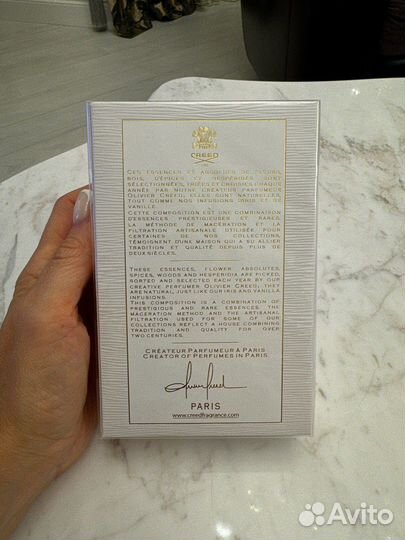 CREED
CES ESSENCES ET ABSOLUES DE FLEURS,
BOIS, D'ÉPICES ET HESPÉRIDÉS SONT
SÉLECTIONNÉES, TRIÉES ET CHOISIES CHAQUE
ANNÉE PAR NOTRE CRÉATEUR PARFUMEUR
OLIVIER CREED, ELLES SONT NATURELLES,
TOUT COMME NOS INFUSIONS D'IRIS ET DE
VANILLE.
CETTE COMPOSITION EST UNE COMBINAISON
D'ESSENCES PRESTIGIEUSES ET RARES,
LA MÉTHODE DE MACÉRATION ET LA
FILTRATION ARTISANALE UTILISÉE POUR
CERTAINES DE NOS COLLECTIONS,
TÉMOIGNENT D'UNE MAISON QUI A SU ALLIER
TRADITION ET QUALITÉ DEPUIS PLUS DE
DEUX SIÈCLES.
THESE ESSENCES, FLOWER ABSOLUTES,
SPICES, WOODS AND HESPERIDIA ARE PICKED,
SORTED AND SELECTED EACH YEAR BY OUR
CREATIVE PERFUMER OLIVIER CREED, THEY
ARE NATURAL, JUST LIKE OUR IRIS AND VANILLA
INFUSIONS.
THIS COMPOSITION IS A COMBINATION OF
PRESTIGIOUS AND RARE ESSENCES. THE
MACERATION METHOD AND THE ARTISANAL
FILTRATION USED FOR SOME OF OUR
COLLECTIONS REFLECT A HOUSE COMBINING
TRADITION AND QUALITY FOR OVER
TWO CENTURIES.
CRÉATEUR PARFUMEUR À PARIS
CREATOR OF PERFUMES IN PARIS
PARIS
www.creedfragrance.com
Avito